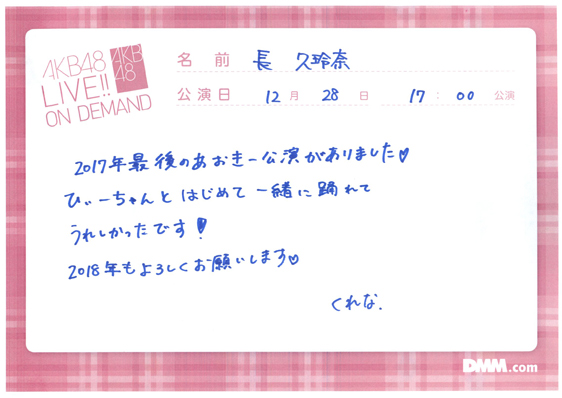 AKB48
LIVE!!
ON DEMAND
AKB
48
名前 長 久玲奈
公演日 12月 28日 17:00 公演
2017年最後のあおきー公演がありました♡
ひぃーちゃんとはじめて一緒に踊れて
うれしかったです!
2018年もよろしくお願いします♡
くれな.
DMM.com